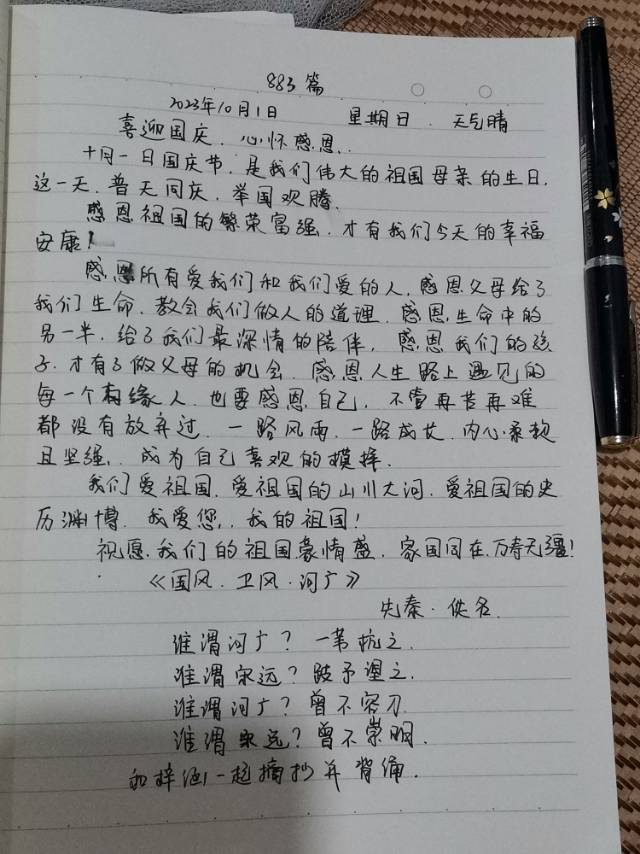 883篇
2023年10月1日 星期日 天气晴
喜迎国庆，心怀感恩.
十月一日国庆节，是我们伟大的祖国母亲的生日，
这一天，普天同庆，举国欢腾.
感恩祖国的繁荣富强，才有我们今天的幸福
安康！
感恩所有爱我们和我们爱的人，感恩父母给了
我们生命，教会我们做人的道理，感恩生命中的
另一半，给了我们最深情的陪伴，感恩我们的孩
子，才有了做父母的机会，感恩人生路上遇见的
每一个有缘人，也要感恩自己，不管再苦再难
都没有放弃过，一路风雨，一路成长，内心柔软
且坚强，成为自己喜欢的模样.
我们爱祖国，爱祖国的山川大河，爱祖国的史
历渊博，我爱您，我的祖国！
祝愿，我们的祖国豪情盛，家国同在，万寿无疆！
《国风·卫风·河广》
先秦·佚名
谁谓河广？一苇杭之.
谁谓宋远？跂予望之.
谁谓河广？曾不容刀.
谁谓宋远？曾不崇朝.
和梓涵一起摘抄并背诵.